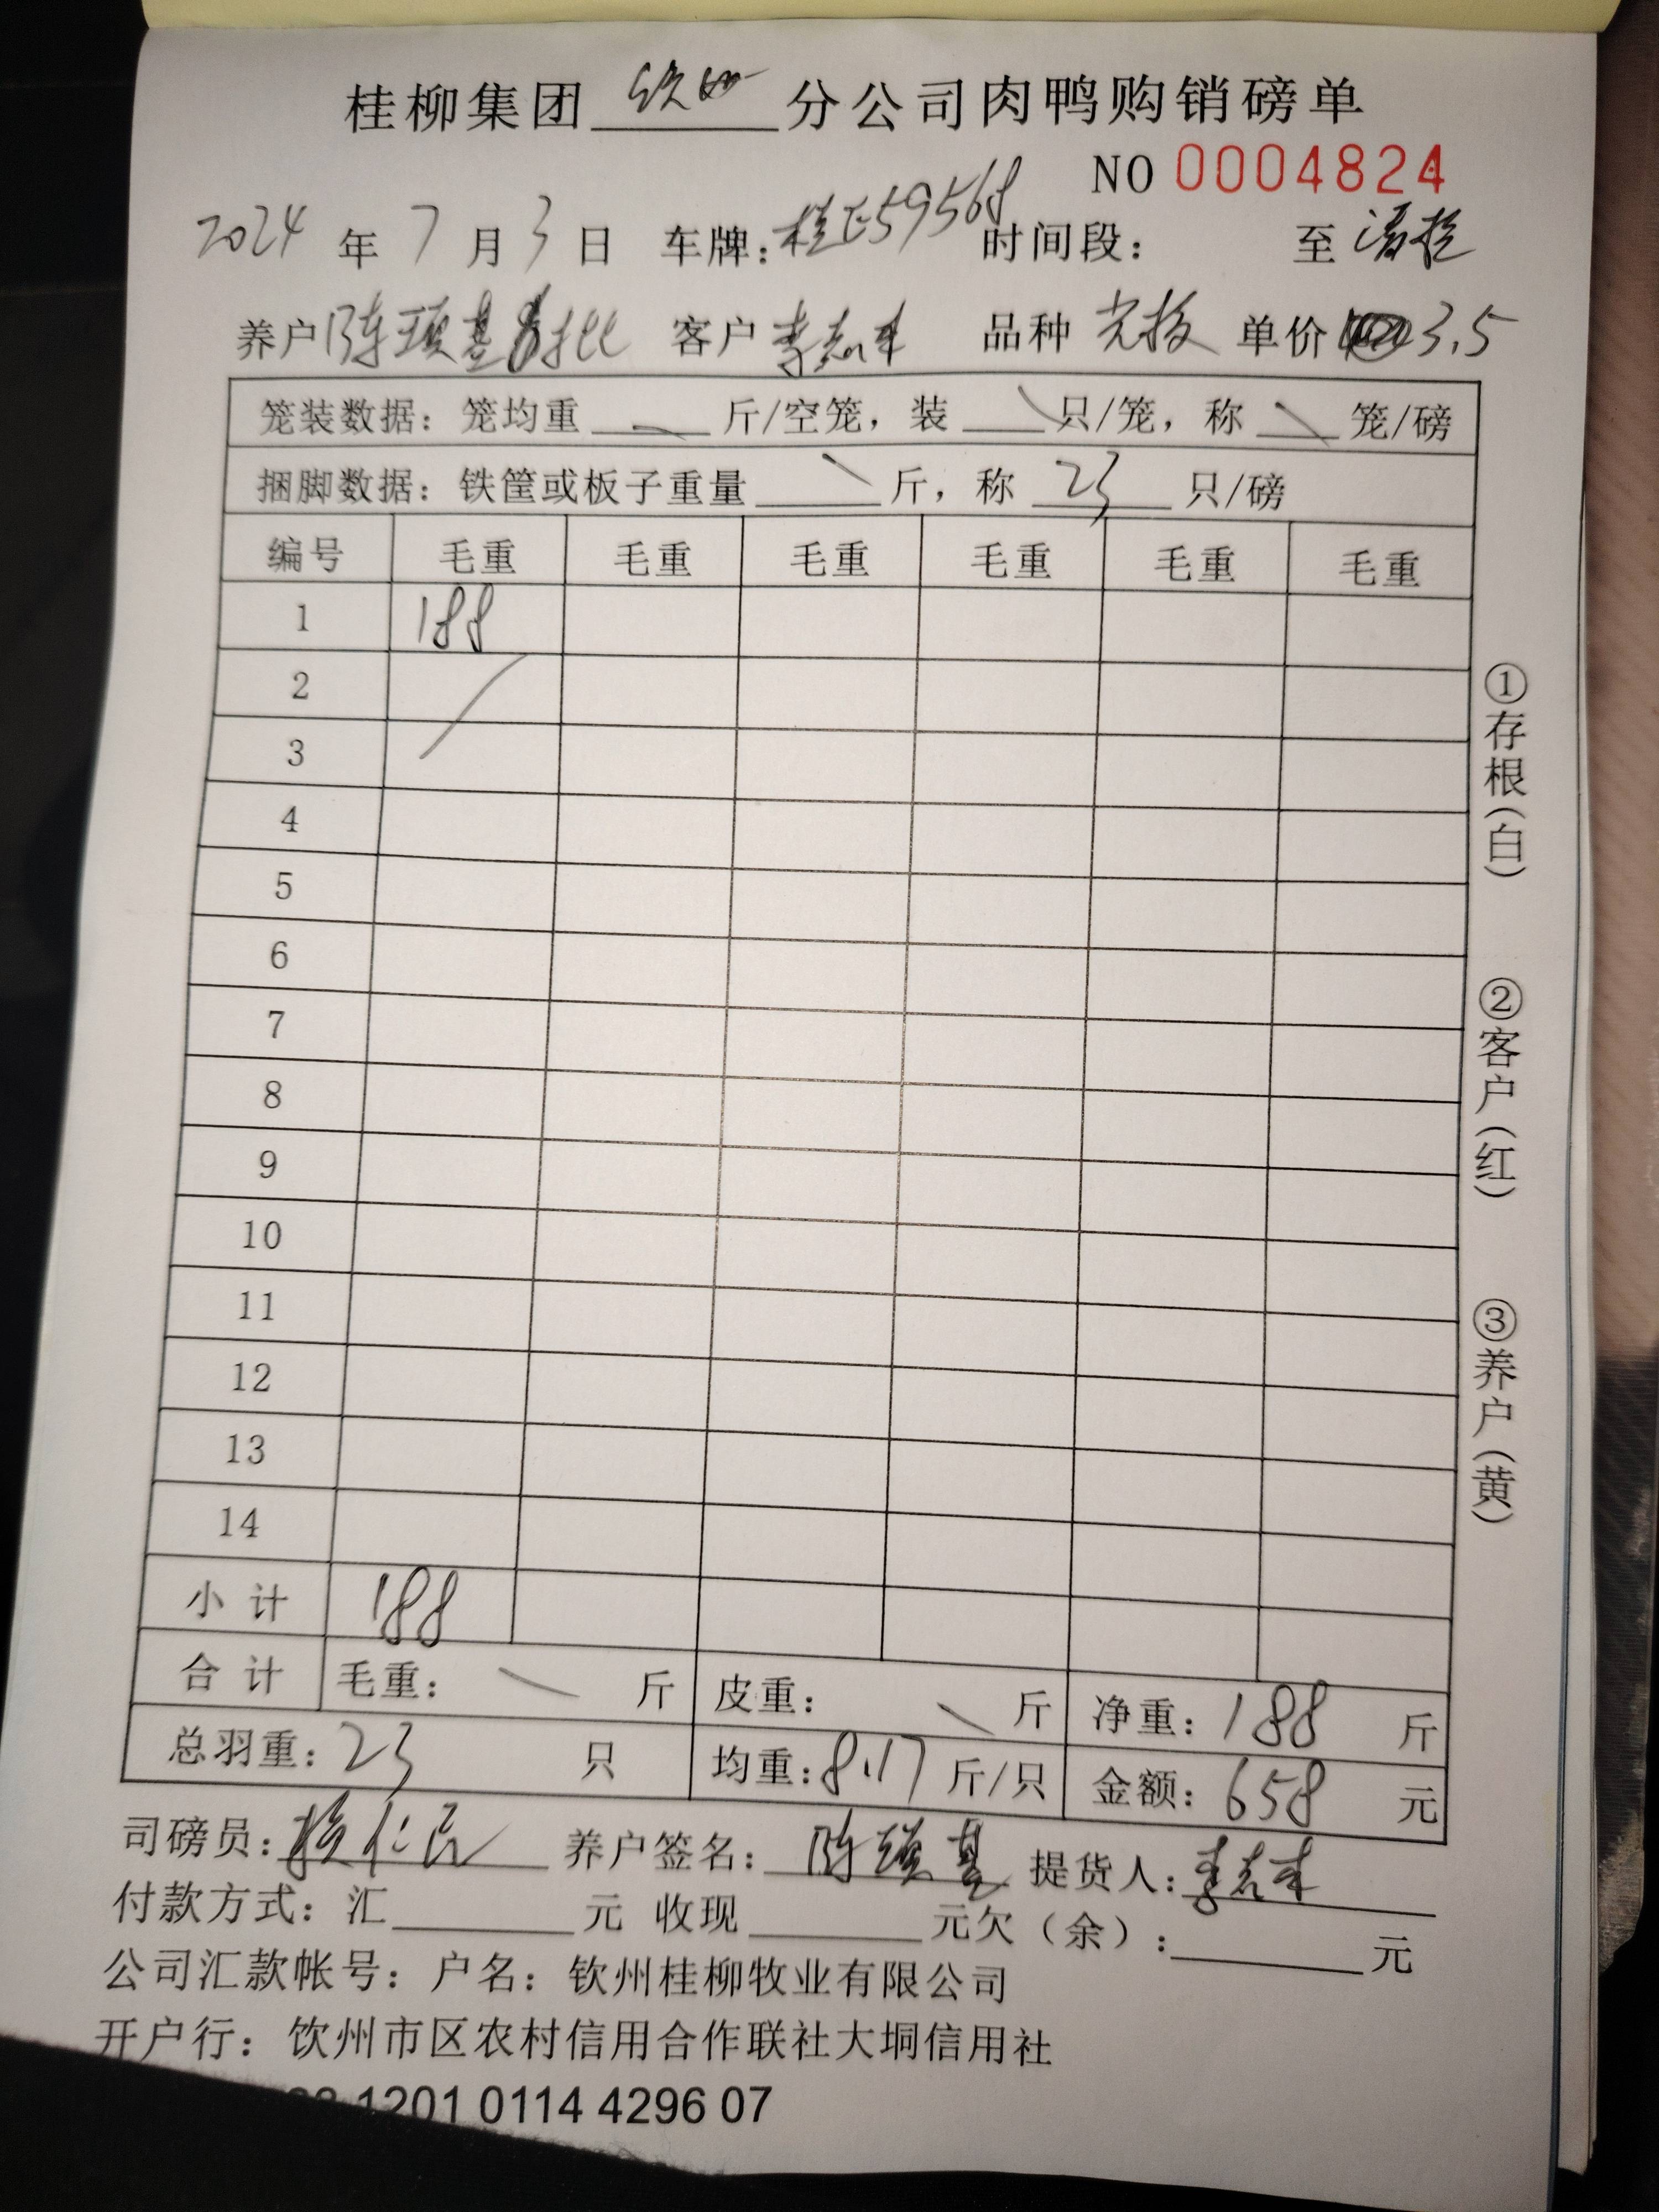 桂柳集团 钦州 分公司肉鸭购销磅单
NO 0004824
2024 年 7 月 3 日 车牌: 桂E59568 时间段: 至
养户 陈 基 批 客户 李志丰 品种 单价 3.5
笼装数据: 笼均重 斤/空笼, 装 只/笼, 称 笼/磅
捆脚数据: 铁筐或板子重量 斤, 称 23 只/磅
编号 毛重 毛重 毛重 毛重 毛重 毛重
1 188
2
3
4
5
6
7
8
9
10
11
12
13
14
小计 188
合计 毛重: 斤 皮重: 斤 净重: 188 斤
总羽重: 23 只 均重: 8.17 斤/只 金额: 658 元
司磅员: 仁 养户签名: 陈 基 提货人: 李志丰
付款方式: 汇 元 收现 元欠(余): 元
公司汇款帐号: 户名: 钦州桂柳牧业有限公司
开户行: 饮州市区农村信用合作联社大垌信用社
1201 0114 4296 07
①存根(白)
②客户(红)
③养户(黄)